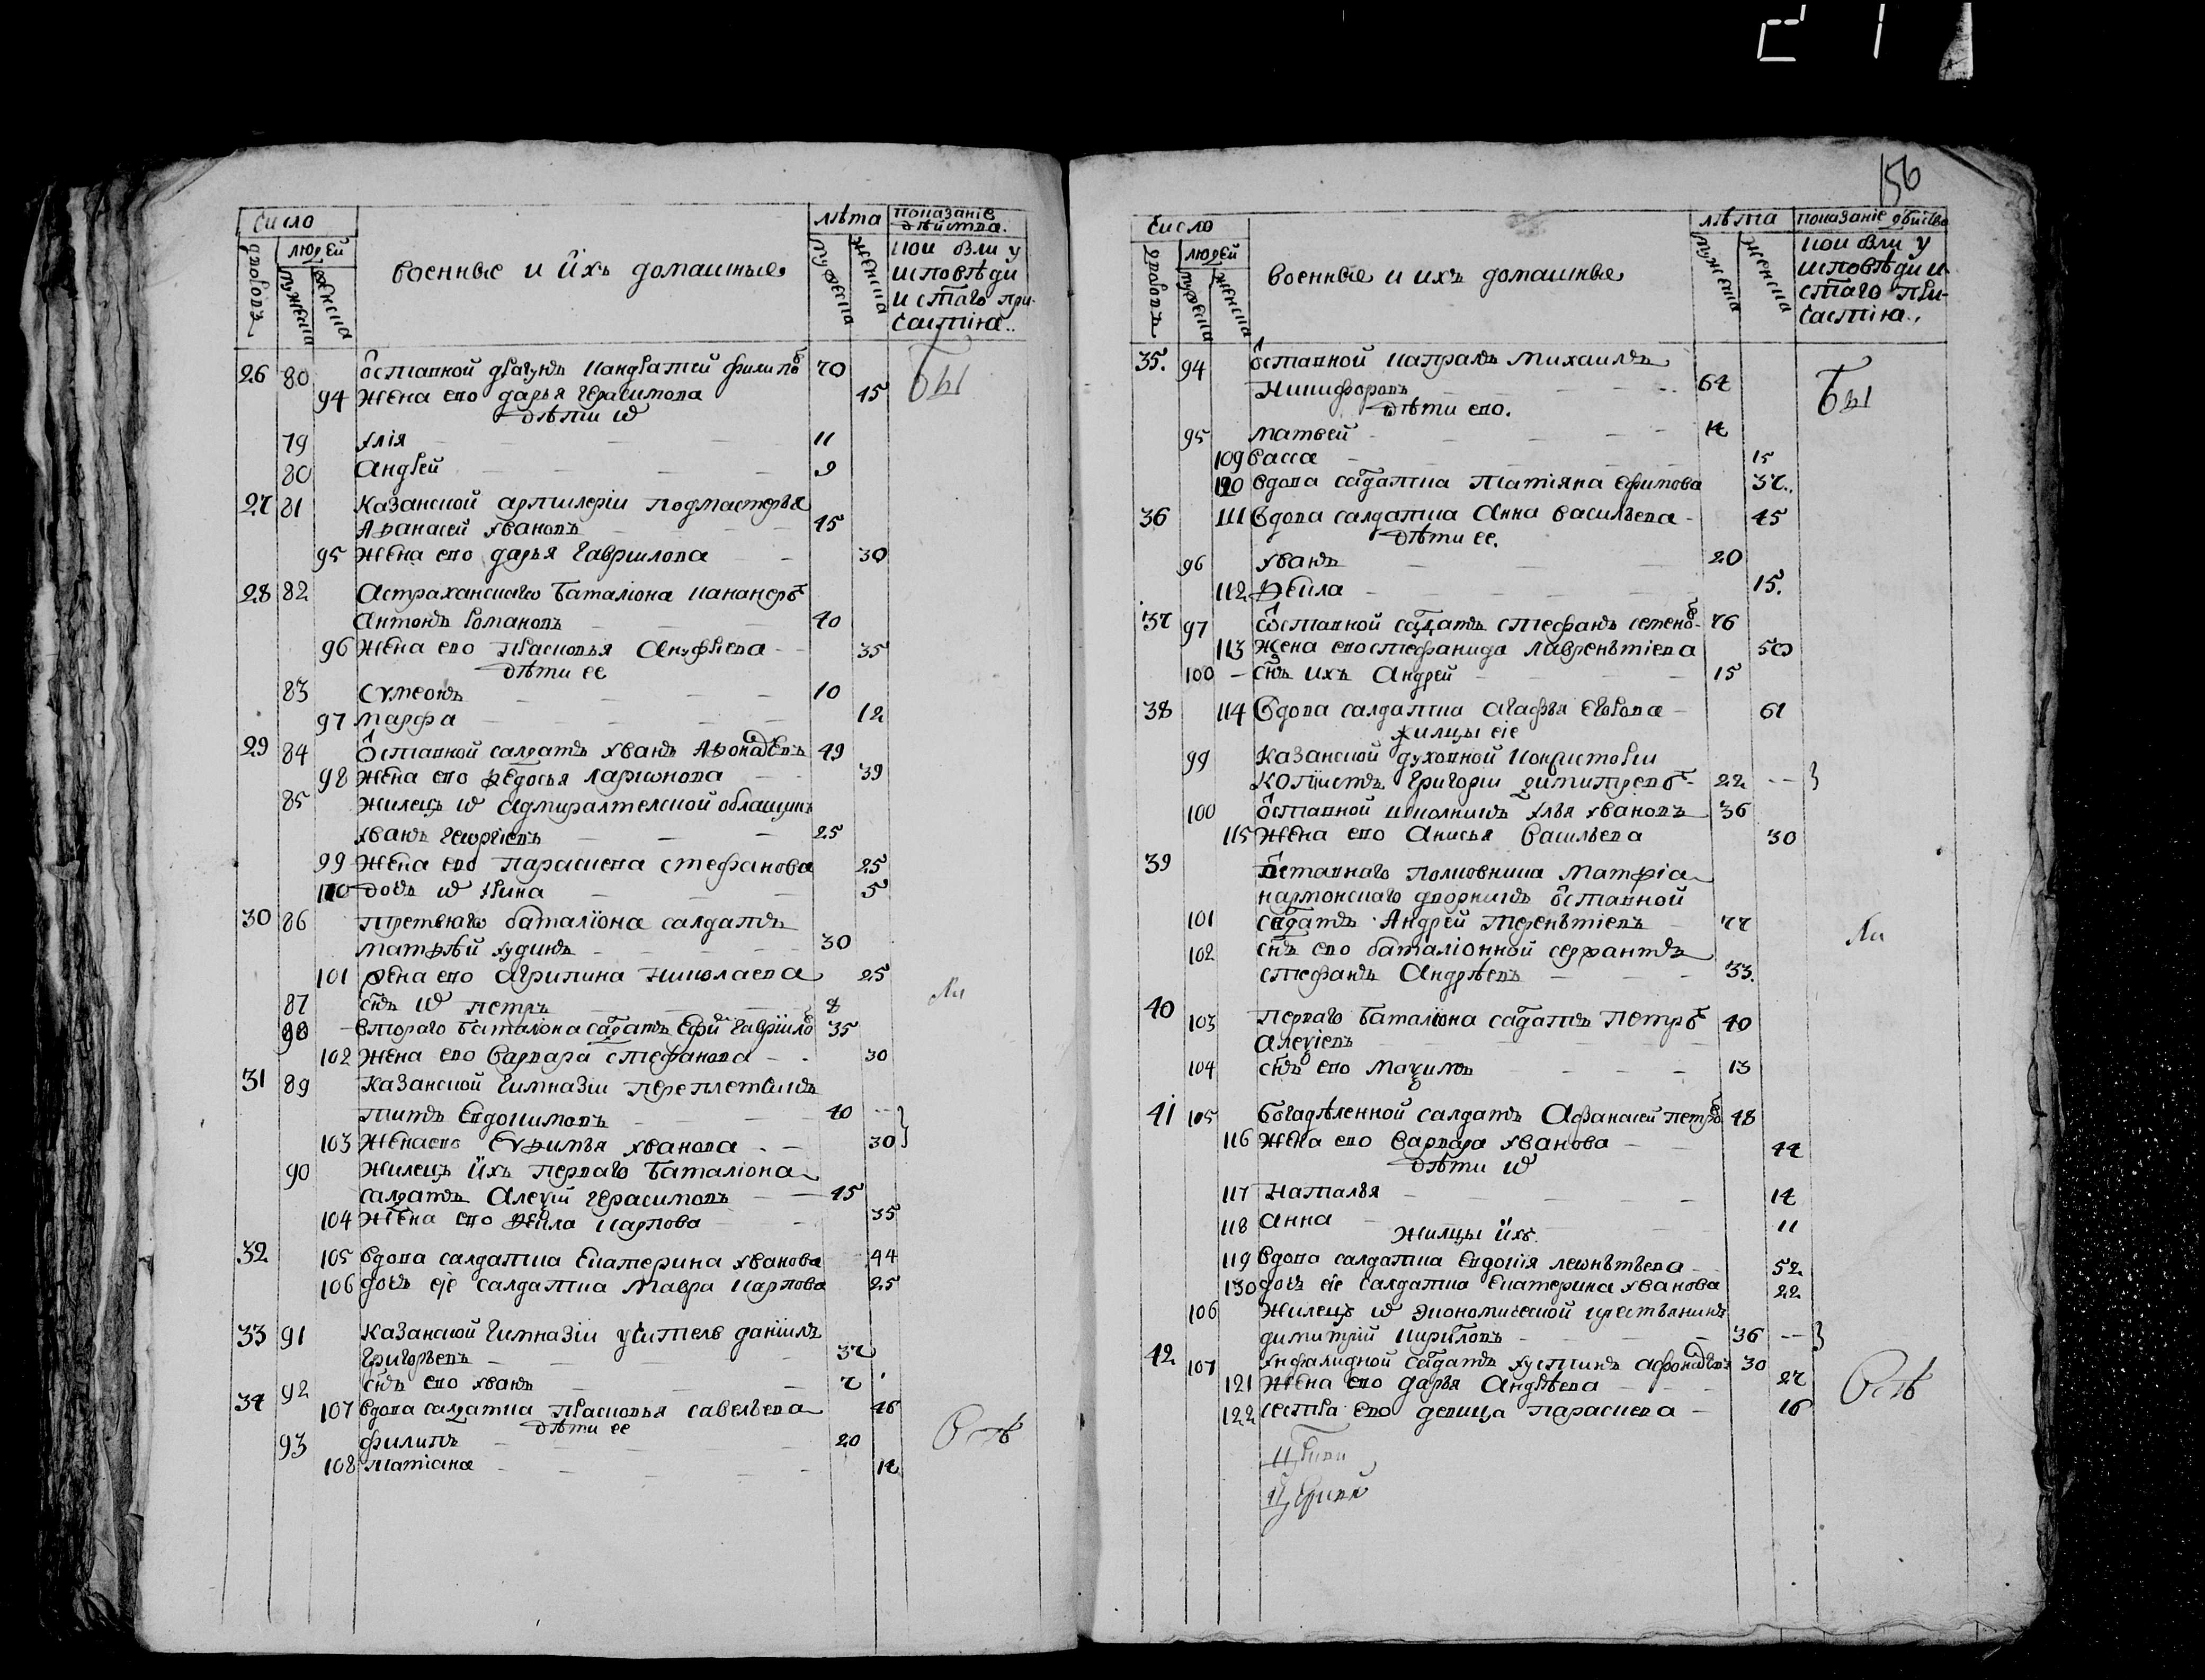 21
число
лѣта
показаніе дѣйства.
дворовъ
людей
мужеска
женска
военные и ихъ домашные
мужеска
женска
кои были у
исповѣди
и стаго при
частія..
26 80 ѿставной драгунъ Кандратей филиповъ 70 Бы
94 жена ево дарья Герасимова 45
дѣти ѡ
79 Илія 11
80 Андрей 9
27 81 Казанской артилеріи подмастерья
Аѳанасей Ивановъ 45
95 жена ево дарья Гаврилова 30
28 82 Астраханскаго баталіона канонеръ
Антонъ Романовъ 40
96 Жена ево прасковья Ануфріева 35
дѣти ее
83 Сѵмеонъ 10
97 марфа 12
29 84 ѿставной салдатъ Иванъ Аѳонасьевъ 49
98 жена ево ѳедосья Ларионова 39
85 жилецъ ѡ адмиралтелской
Иванъ Геѡргіевъ 25
99 жена ево парасчева стефанова 25
100 дочь ѡ Ирина 5
30 86 третьяго баталіона салдатъ
матѳѣй Iудинъ 30
101 жена ево Агрипина Николаева 25
87 снъ ѡ петръ 8 ли
90 втораго баталіона садатъ Ефи Гаврило 35
102 жена ево варвара стефанова 30
31 89 Казанской Гимназіи переплетчикъ
титъ Евдокимовъ 40
103 Жена ево Еѵѳимья Иванова 30
90 жилецъ ихъ перваго баталіона
салдатъ Алеѯій Герасимовъ 45
104 жена ево Ѳекла Карпова 35
32 105 вдова салдатка Екатерина Иванова 44
106 дочь еіе салдатка Мавра Карпова 25
33 91 Казанской Гимназіи учитель даніилъ
Григорьевъ 37
92 снъ ево Иванъ 7
34 107 вдова салдатка прасковья савельева 46
дѣти ее
93 филипъ 20
108 татіана 14
156
число
лѣта
показаніе дѣйства
дворовъ
людей
мужеска
женска
военные и ихъ домашные
мужеска
женска
кои были у
исповѣди и
стаго при-
частія.,
35. 94 ѿставной капралъ михаилъ
Никифоровъ 64 Бы
дѣти ево.
95 матвей 14
109 васса 15
120 вдова садатка татіяна Ефимова 37..
36 111 вдова салдатка Анна васильева 45
дѣти ее.
96 Иванъ 20
112 Ѳекла 15.
37 97 ѿставной садатъ стефанъ семено 76
113 жена ево стефанида лаврентіева 50
100 снъ ихъ Андрей 15
38 114 вдова салдатка агафья Егорова 61
жилцы еіе
99 Казанской духовной Конристоріи
копиистъ Григории димитревъ 22
100 ѿставной школникъ Илья Ивановъ 36
115 жена ево Анисья васильева 30
39 ѿставнаго полковника матѳіа
нармонскаго дворникъ ѿставной
101 садатъ Андрей терентіевъ 77
102 снъ ево баталіонной сержантъ ли
стефанъ Андрѣевъ 33.
40 103 перваго баталіона садатъ петръ 40
Алеѯіевъ
104 снъ ево маѯимъ 13
41 105 богадѣленной салдатъ Афанасей петро 48
116 жена ево варвара Иванова 44
дѣти ѡ
117 Наталья 14
118 Анна 11
жилцы ихъ.
119 вдова салдатка Евдокія леѡнтьева 52
130 дочь еіе салдатка Екатерина Иванова 22
106 жилецъ ѡ экономической крестьянинъ
димитрій кириловъ 36
42 107 Инфалидной садатъ Iустинъ афонасьевъ 30
121 жена ево дарья Андрѣева 27
122 сестра ево девица парасчева 16